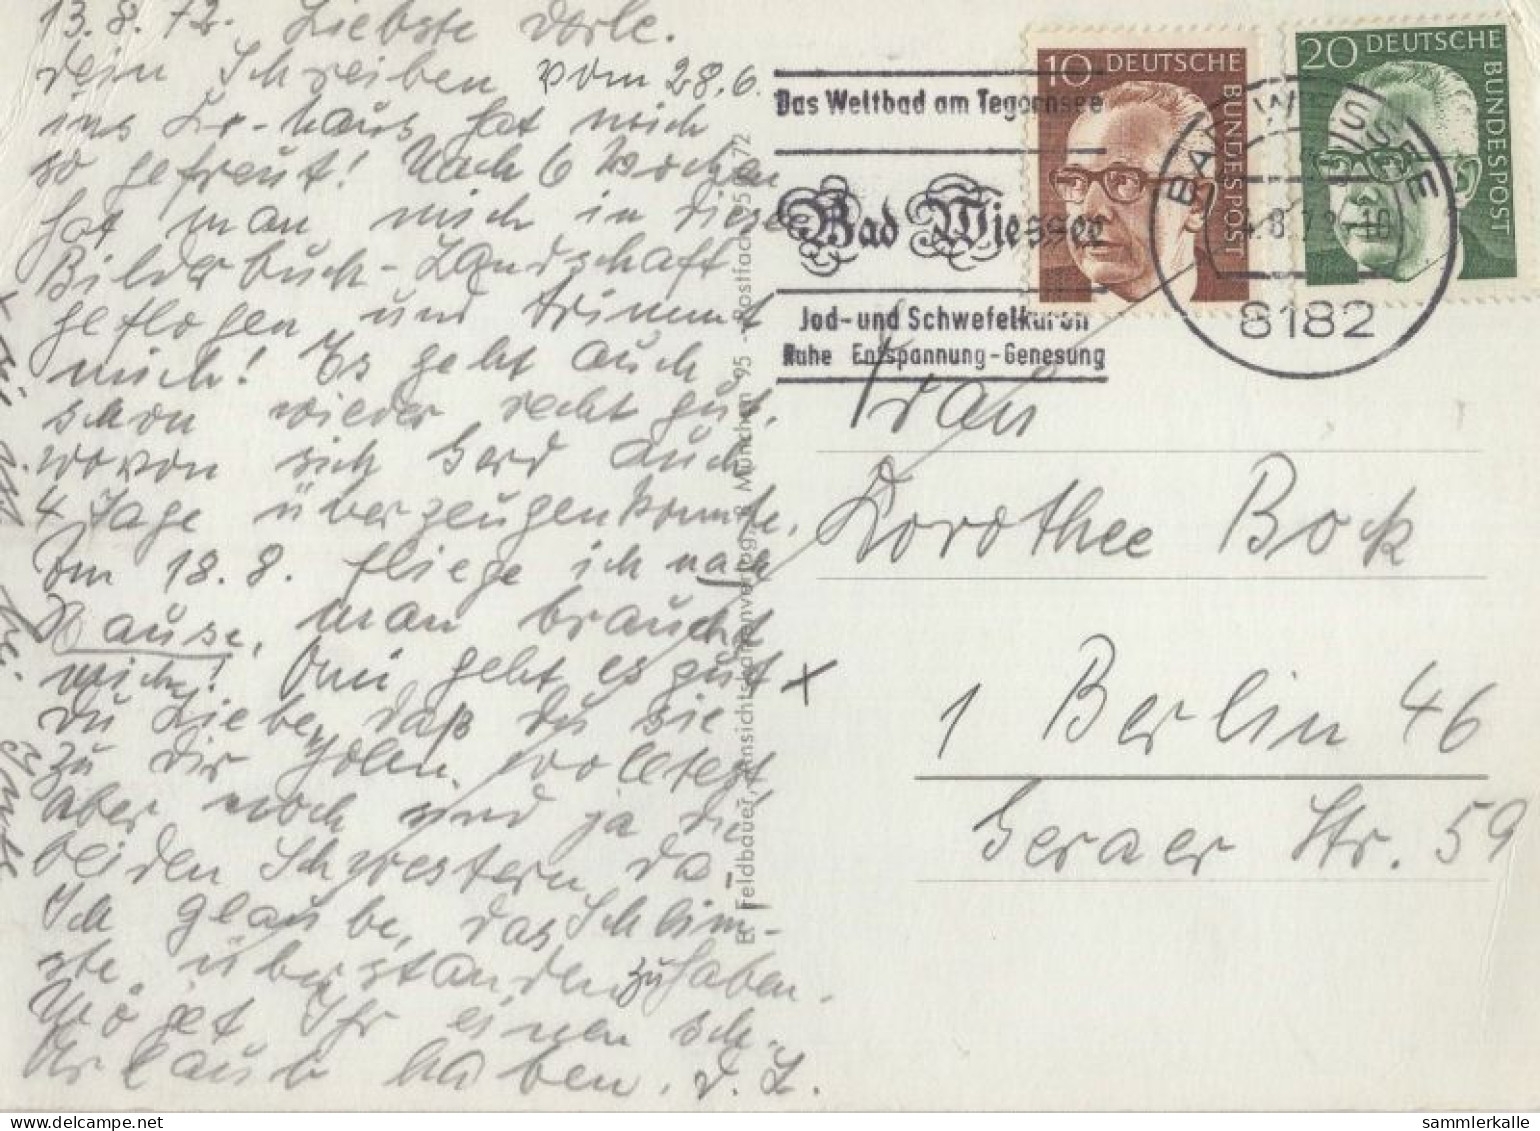 13.8.72. Liebste Dorle.
Dein Schreiben vom 28.6.
ins Kr-haus hat mich
so gefreut! Nach 6 Wochen
hat man mich in diese
Bilderbuch-Landschaft
geflogen und trimmt
mich! Es geht auch
schon wieder recht gut,
wovon sich Gerd auch
4 Tage überzeugen konnte.
Am 18.8. fliege ich nach
Hause, man braucht
mich! Omi geht es gut x
Du Liebe, daß Du sie
zu Dir holen wolltest
aber noch sind ja die
beiden Schwestern da.
Ich glaube, das Schlim-
ste überstanden zu haben.
Möget Ihr einen sch.
Urlaub haben. D. L.
B. Feldbauer, Ansichtskartenverlag, 8 München 95 - Postfach
72
Das Weltbad am Tegernsee
Bad Wiessee
Jod- und Schwefelkuren
Ruhe Entspannung-Genesung
10 DEUTSCHE
BUNDESPOST
20 DEUTSCHE
BUNDESPOST
BAD WIESSEE
8182
Frau
Dorothee Bock
1 Berlin 46
Geraer Str. 59
sammlerkalle